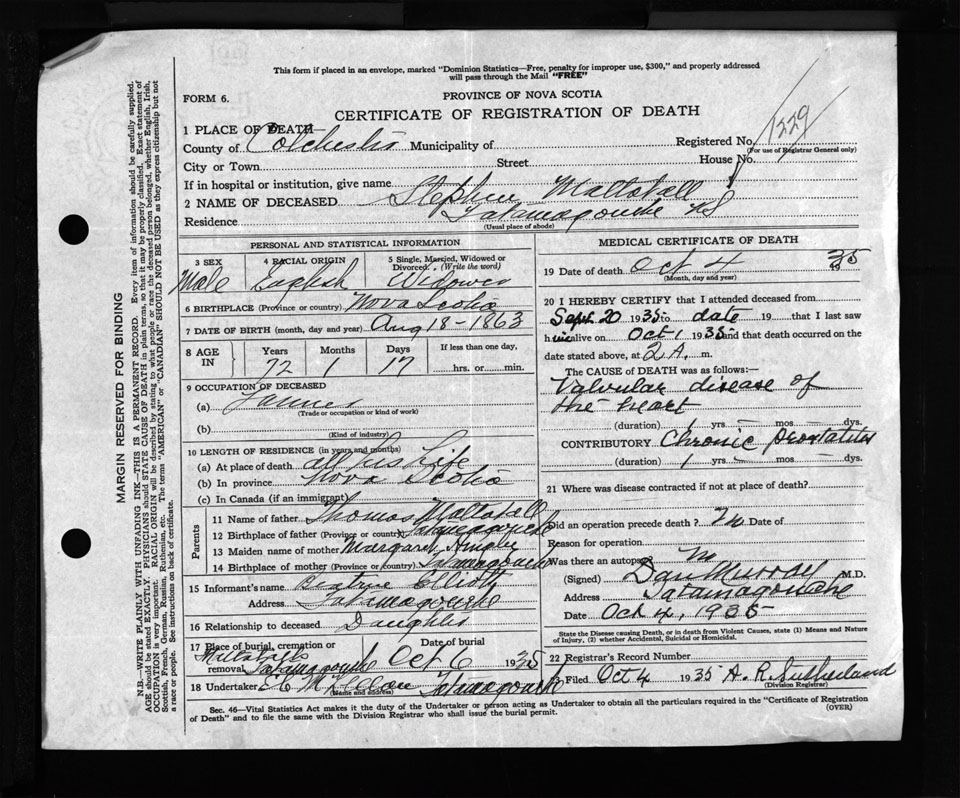 This form if placed in an envelope, marked "Dominion Statistics—Free, penalty for improper use, $300," and properly addressed
will pass through the Mail "FREE"
FORM 6.
PROVINCE OF NOVA SCOTIA
CERTIFICATE OF REGISTRATION OF DEATH
1229
1 PLACE OF DEATH—
County of Colchester Municipality of Registered No.
(For use of Registrar General only)
City or Town Street House No.
If in hospital or institution, give name
2 NAME OF DECEASED Stephen Mattatall
Residence Tatamagouche NS
(Usual place of abode)
PERSONAL AND STATISTICAL INFORMATION
3 SEX 4 RACIAL ORIGIN 5 Single, Married, Widowed or
Divorced. (Write the word)
Male English Widower
6 BIRTHPLACE (Province or country) Nova Scotia
7 DATE OF BIRTH (month, day and year) Aug 18-1863
8 AGE IN Years Months Days If less than one day,
72 1 17 hrs. or min.
9 OCCUPATION OF DECEASED
(a) Farmer
(Trade or occupation or kind of work)
(b)
(Kind of industry)
10 LENGTH OF RESIDENCE (in years and months)
(a) At place of death all his life
(b) In province Nova Scotia
(c) In Canada (if an immigrant)
Parents
11 Name of father Thomas Mattatall
12 Birthplace of father (Province or country) Tatamagouche
13 Maiden name of mother Margaret
14 Birthplace of mother (Province or country) Tatamagouche
15 Informant's name Beatrice Elliott
Address Tatamagouche
16 Relationship to deceased Daughter
17 Place of burial, cremation or Date of burial
removal Mattatalls Tatamagouche Oct 6 1935
18 Undertaker Tatamagouche
Name and address
MEDICAL CERTIFICATE OF DEATH
19 Date of death Oct 4 1935
(Month, day and year)
20 I HEREBY CERTIFY that I attended deceased from
Sept. 20 1935 to date 19 that I last saw
him alive on Oct 1 1935 and that death occurred on the
date stated above, at 2 A. m.
The CAUSE of DEATH was as follows:—
Valvular disease of
the heart
(duration) 1 yrs. mos. dys.
CONTRIBUTORY Chronic prostatitis
(duration) 1 yrs. mos. dys.
21 Where was disease contracted if not at place of death?
Did an operation precede death? No Date of
Reason for operation
Was there an autopsy No
(Signed) Dan Murray M.D.
Address Tatamagouche
Date Oct 4, 1935
State the Disease causing Death, or in death from Violent Causes, state (1) Means and Nature
of Injury, (2) whether Accidental, Suicidal or Homicidal.
22 Registrar's Record Number
23 Filed Oct 4 1935 A. R. Sutherland
(Division Registrar)
Sec. 46—Vital Statistics Act makes it the duty of the Undertaker or person acting as Undertaker to obtain all the particulars required in the "Certificate of Registration
of Death" and to file the same with the Division Registrar who shall issue the burial permit.
(OVER)
MARGIN RESERVED FOR BINDING
N.B.—WRITE PLAINLY WITH UNFADING INK—THIS IS A PERMANENT RECORD. Every item of information should be carefully supplied.
AGE should be stated EXACTLY. PHYSICIANS should STATE CAUSE OF DEATH in plain terms, so that it may be properly classified. Exact statement of
OCCUPATION is very important. RACIAL ORIGIN will be described by stating to what people or race the deceased person belonged, whether English, Irish,
Scottish, French, German, Russian, Ruthenian, etc. The terms "AMERICAN" or "CANADIAN" SHOULD NOT BE USED as they express citizenship but not
a race or people. See instructions on back of certificate.